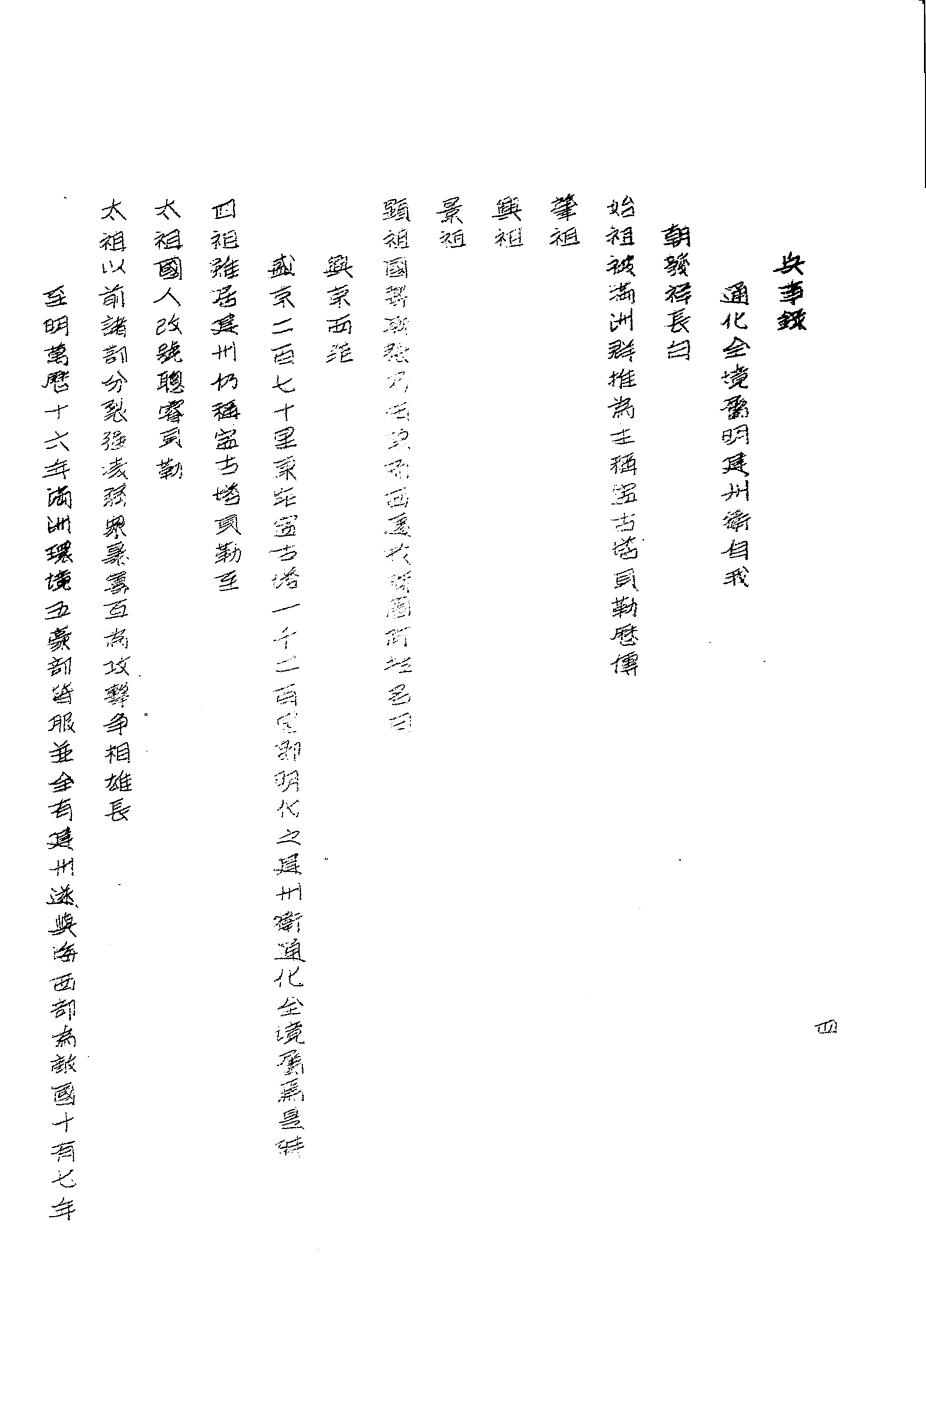 兵事錄
通化全境舊明建州衛自我
朝發祥長白
始祖被滿洲群推為主稱寍古塔貝勒歷傳
肇祖
興祖
景祖
顯祖國
興京西距
盛京二百七十里東距寍古塔一千二百里即明代之建州衛通化全境舊焉是時
四祖雖居建州仍稱寍古塔貝勒至
太祖國人改號聰睿貝勒
太祖以前諸部分裂強凌弱眾暴寡互為攻擊争相雄長
至明萬曆十六年滿洲環境五豪部皆服並全有建州遂與海西部為敵國十有七年
四